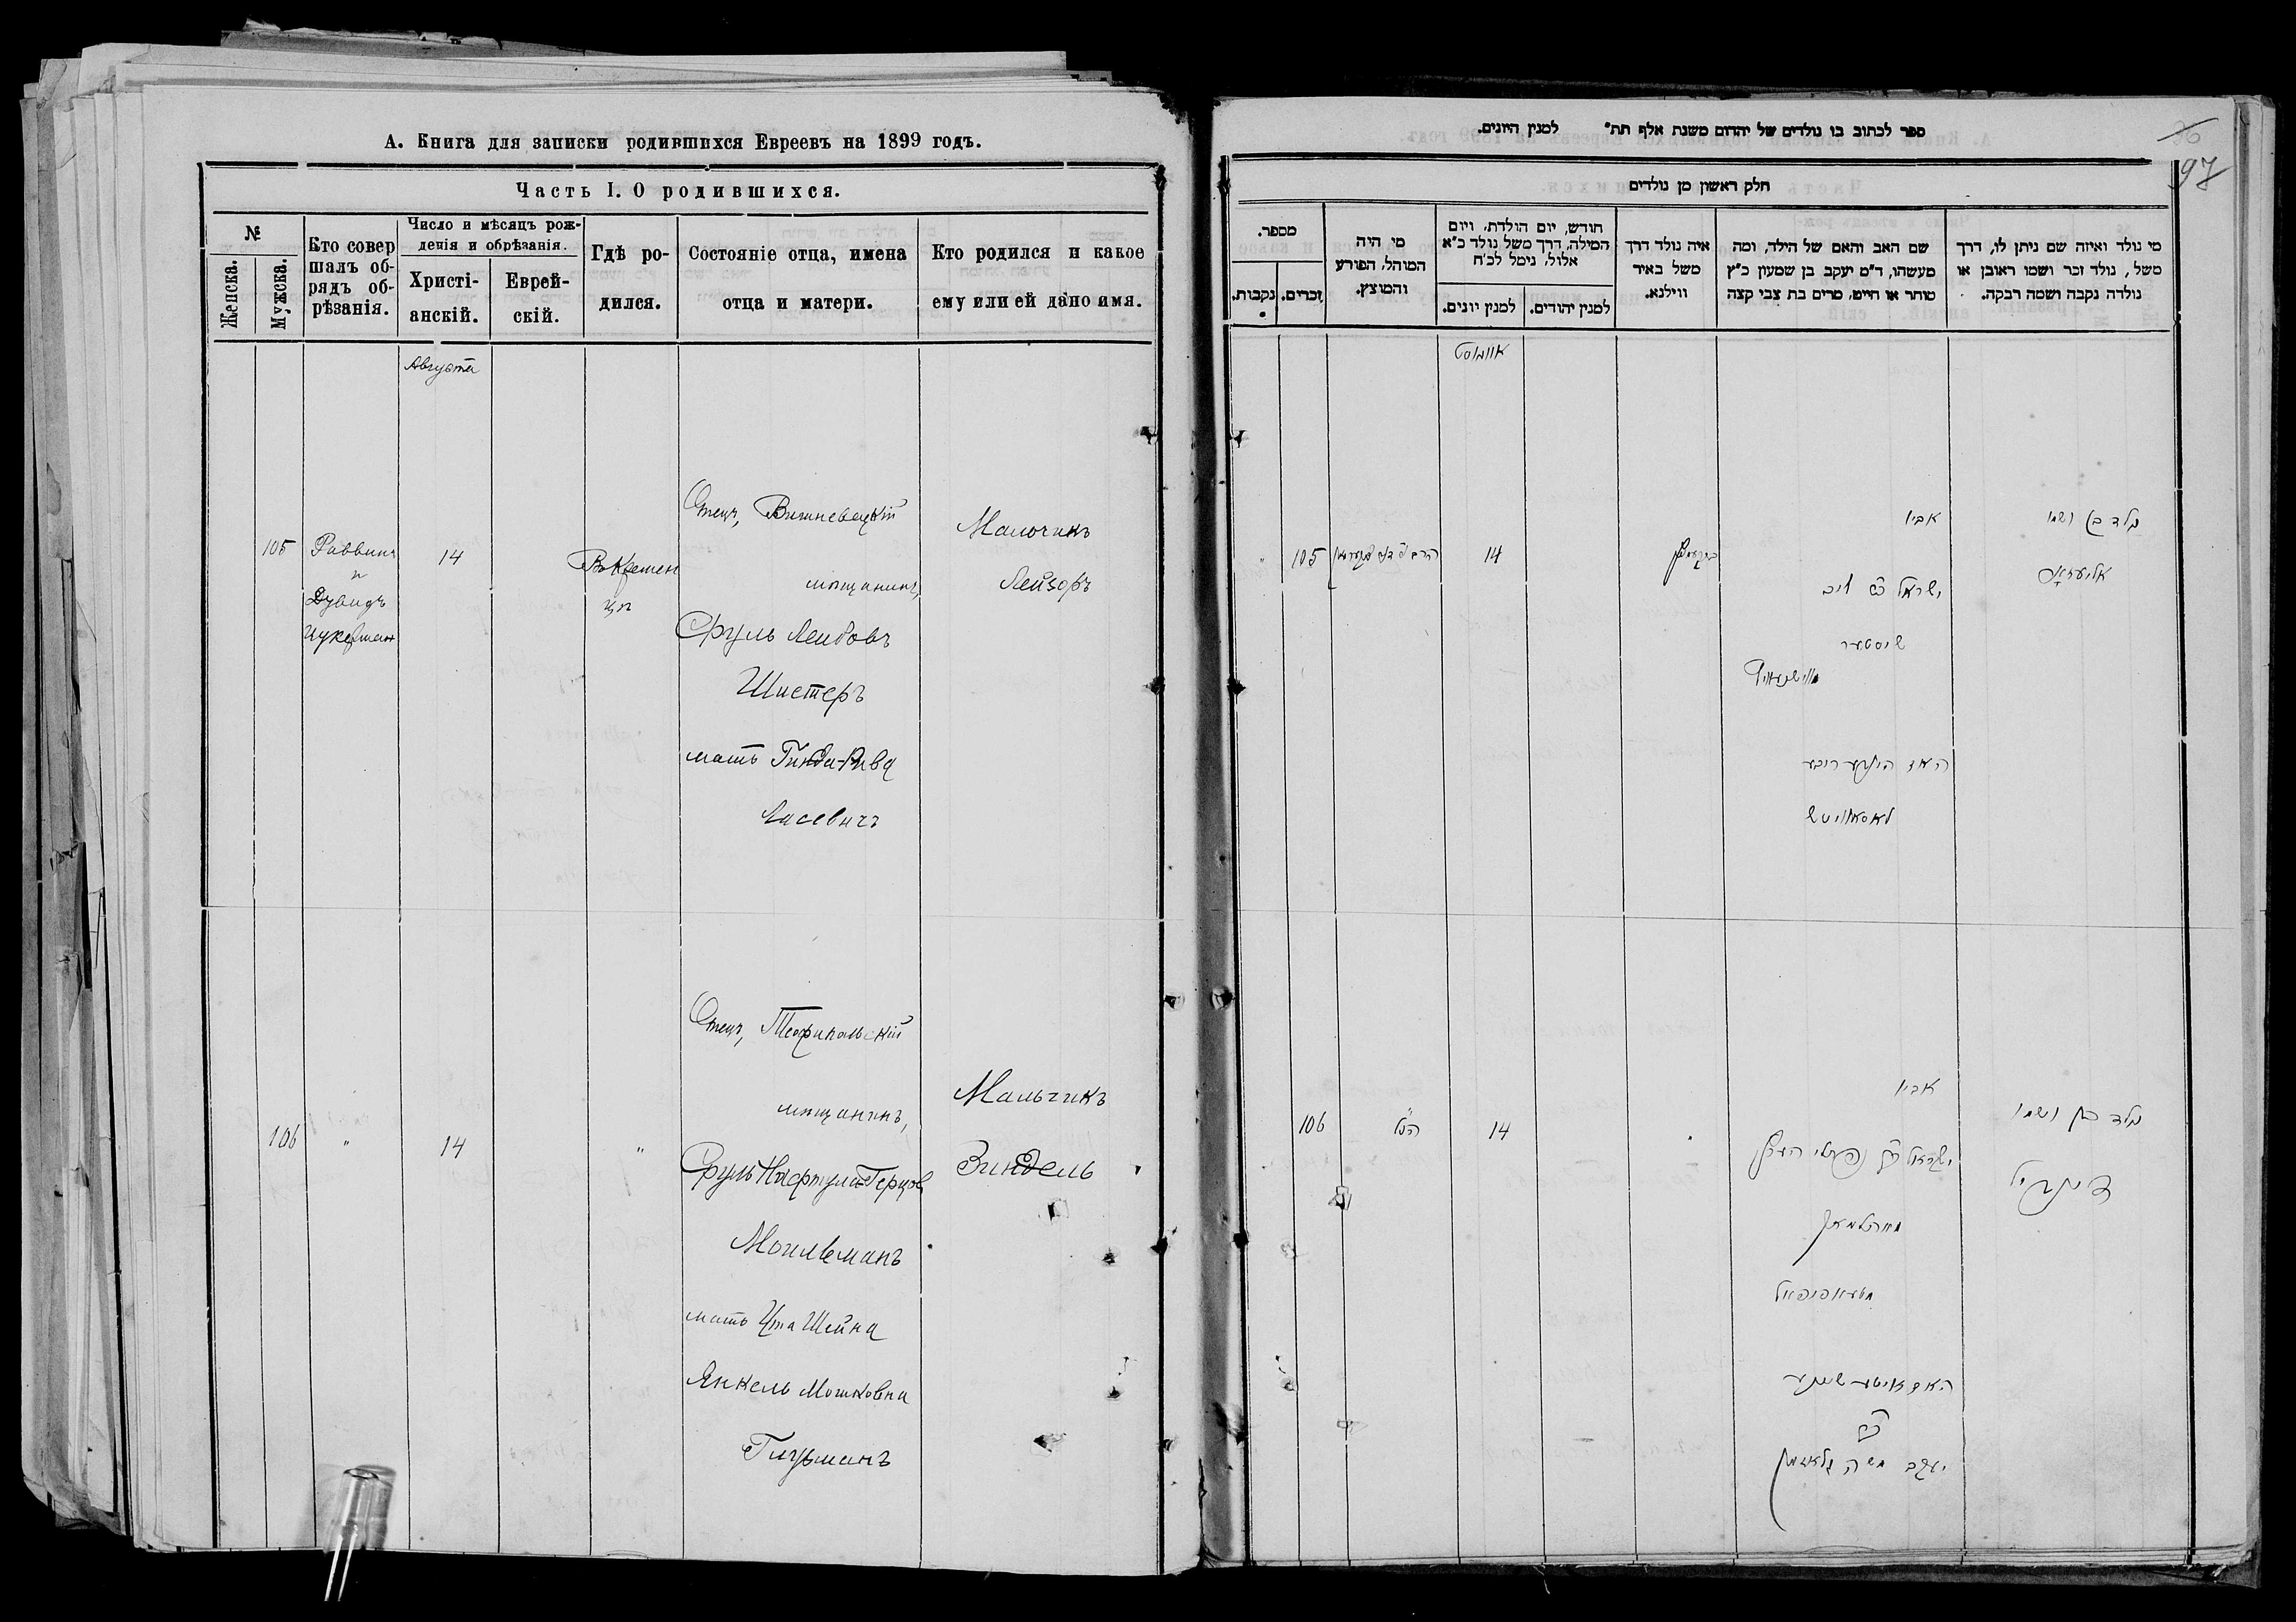 А. Книга для записки родившихся Евреевъ на 1899 годъ.
Часть I. О родившихся.
№
Женска.
Мужска.
Кто совер
шалъ об-
рядъ об-
рѣзанія.
Число и мѣсяцъ рож-
денія и обрѣзанія.
Христі-
анскій.
Еврей-
скій.
Гдѣ ро-
дился.
Состояніе отца, имена
отца и матери.
Кто родился и какое
ему или ей дано имя.
Августа
105
Раввинъ
и
Дувидъ
Цукерман
14
Въ Кремен
цѣ
Отецъ, Вишневецкій
мѣщанинъ,
Сруль Лейбовъ
Шистеръ
мать Гинда-Рива
Мальчикъ
Лейзоръ
106
"
14
"
Отецъ, Теофипольскій
мѣщанинъ,
Сруль Нафтула Герцов
Могильманъ
мать Ита Шейна
Янкель Мошковна
Мальчикъ
Зиндель
ספר לכתוב בו נולדים של יהדום משנת אלף תת״ למנין היונים.
96
97
חלק ראשון מן נולדים
מספר.
נקבות.
זכרים.
מי היה
המוהל, הפורע
והמוצץ.
חודש, יום הולדת, ויום
המילה, דרך משל נולד כ״א
אלול, נימל לכ״ח
למנין יונים.
למנין יהודים.
איה נולד דרך
משל באיד
ווילנא.
שם האב והאם של הילד, ומה
מעשהו, ד״מ יעקב בן שמעון כ״ץ
סוחר או חייט, מרים בת צבי קצה
מי נולד ואיזה שם ניתן לו, דרך
משל, נולד זכר ושמו ראובן או
נולדה נקבה ושמה רבקה.
אווגוסט
"
105
14
אביו
ישראל ב״ר ליב
שיסטער
האם הינדע ריבע
נולד בן ושמו
אליעזר
106
הנ״ל
14
"
אביו
ישראל
נולד בן ושמו
זינדיל
האם איטע שיינע
יעקב משה